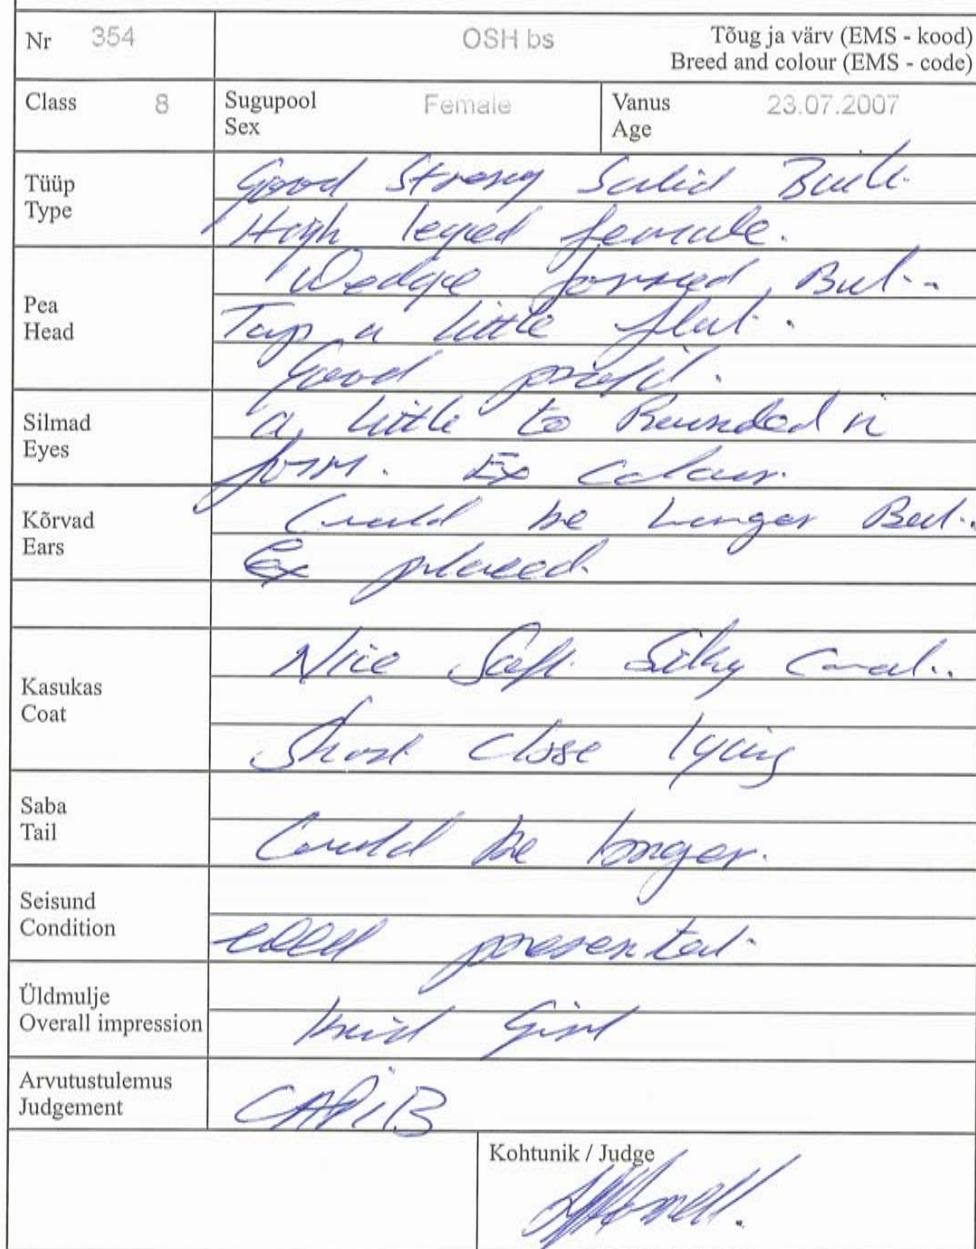 Nr 354 OSH bs Tõug ja värv (EMS - kood)
Breed and colour (EMS - code)
Class 8 Sugupool Female Vanus 23.07.2007
Sex Age
Tüüp Good Strong Solid Built
Type High leged female.
Wedge formed But..
Pea
Head Top a little flat.
Good profil.
Silmad a little to Rounded in
Eyes form. Ex colour.
Kõrvad Could be longer But..
Ears Ex placed.
Nice Soft Silky Coat..
Kasukas
Coat
Short close lying
Saba
Tail Could be longer.
Seisund
Condition well presented.
Üldmulje
Overall impression Kind Girl
Arvutustulemus
Judgement CAPiB
Kohtunik / Judge